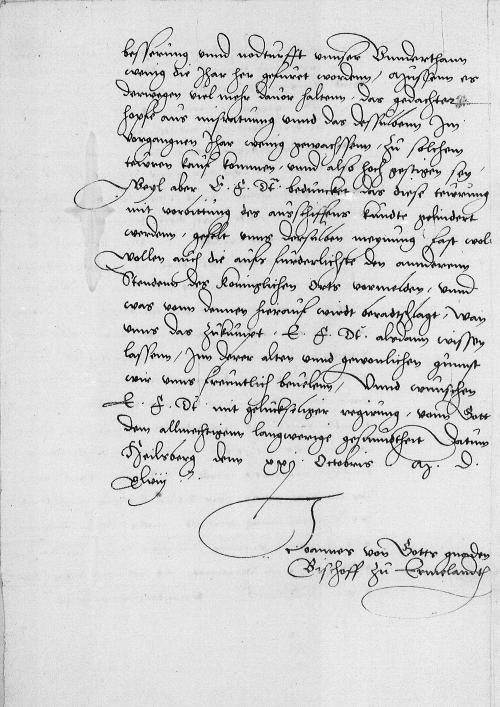 besserung vnnd nodturfft vnnser Vnnderthann
wenig die Jhar her gefuret wordenn, Mussenn es
derwegen viel mehr dauor haltenn, das gedachter
hopffe aus mysratung vnnd das desselbenn Jm
vorgangnen Jhar wenig gewachssenn, zu solchem
tewren kauf kommen, vnnd also hoch gestigen sey,
Weyl aber E. F. Dt. bedunckt das diese tewrung
mit vorbittung des ausschiffens kundte gehindert
werdenn, gefelt vnns derselben meynung fast wol
Wollen auch die aufs furderlichste den annderenn
Stendenn des koniglichen Orts vormelden, vnnd
was vonn dennen hierauf wirdt beradtschlagt, Wan
vnns das zukumpt, E. F. Dt. alsdann wissen
lassenn, Jnn derer alten vnnd gewonlichen gunnst
wir vnns freuntlich beuelenn, Vnnd wunschen
E. F. Dt. mit geluckseliger regirung, vonn Gott
dem allmechtigenn langwerige gesundtheit Datum
Heilsberg dem xxj Octobris M. D.
xlviij
Joannes von Gotts gnaden
Bischoff zu Ermelandt